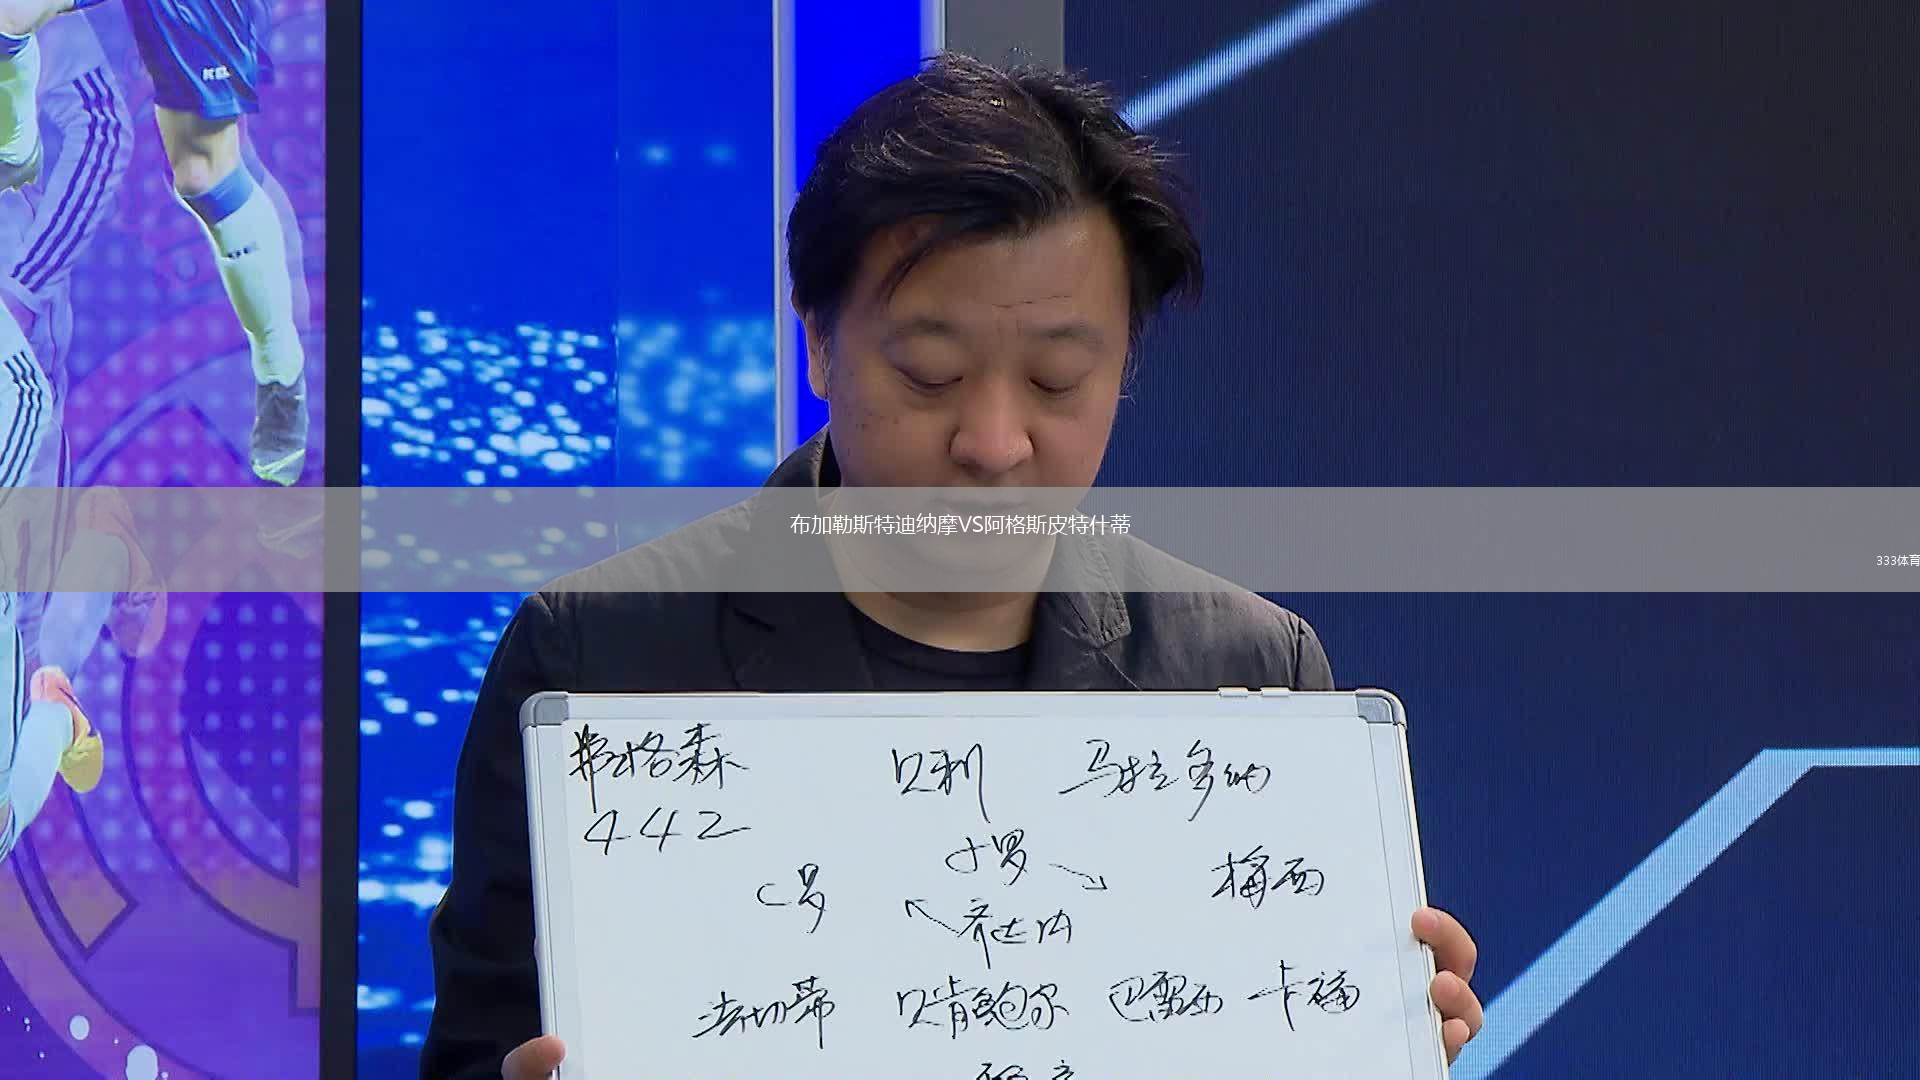 KELME
布加勒斯特迪纳摩VS阿格斯皮特什蒂
333体育
弗格森 贝利 马拉多纳
442
小罗
C罗 梅西
齐达内
法切蒂 贝肯鲍尔 巴雷西 卡福